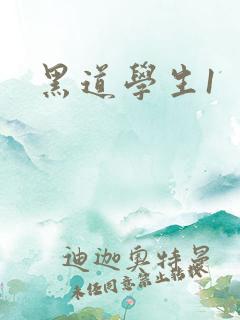 黑道學生1
迪迦奥特曼
未经同意禁止转换